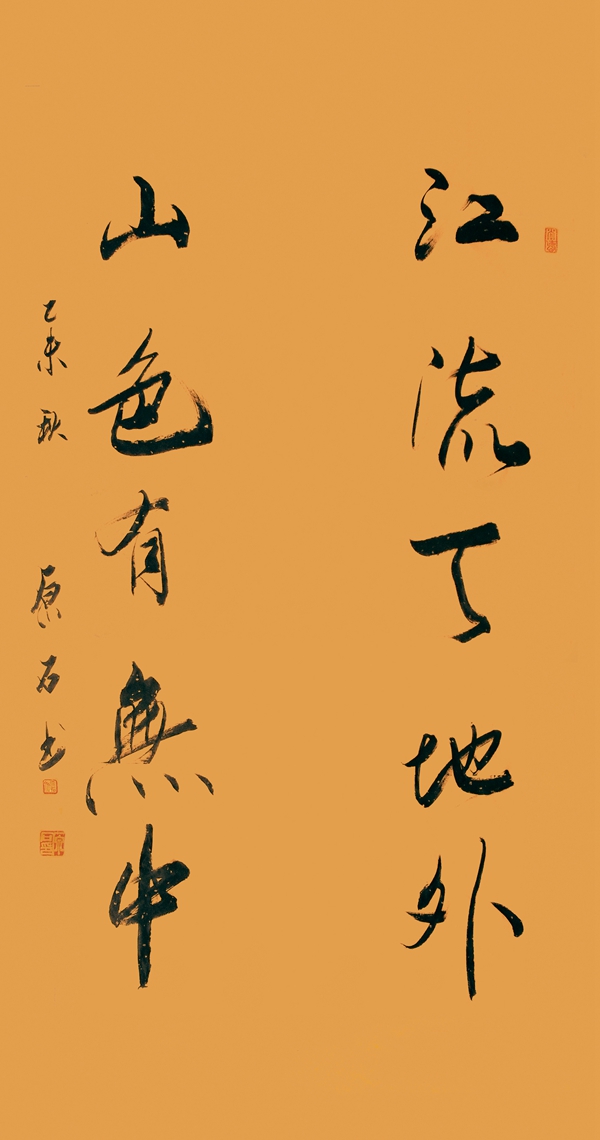 江流天地外
山色有無中
乙未秋 原石书